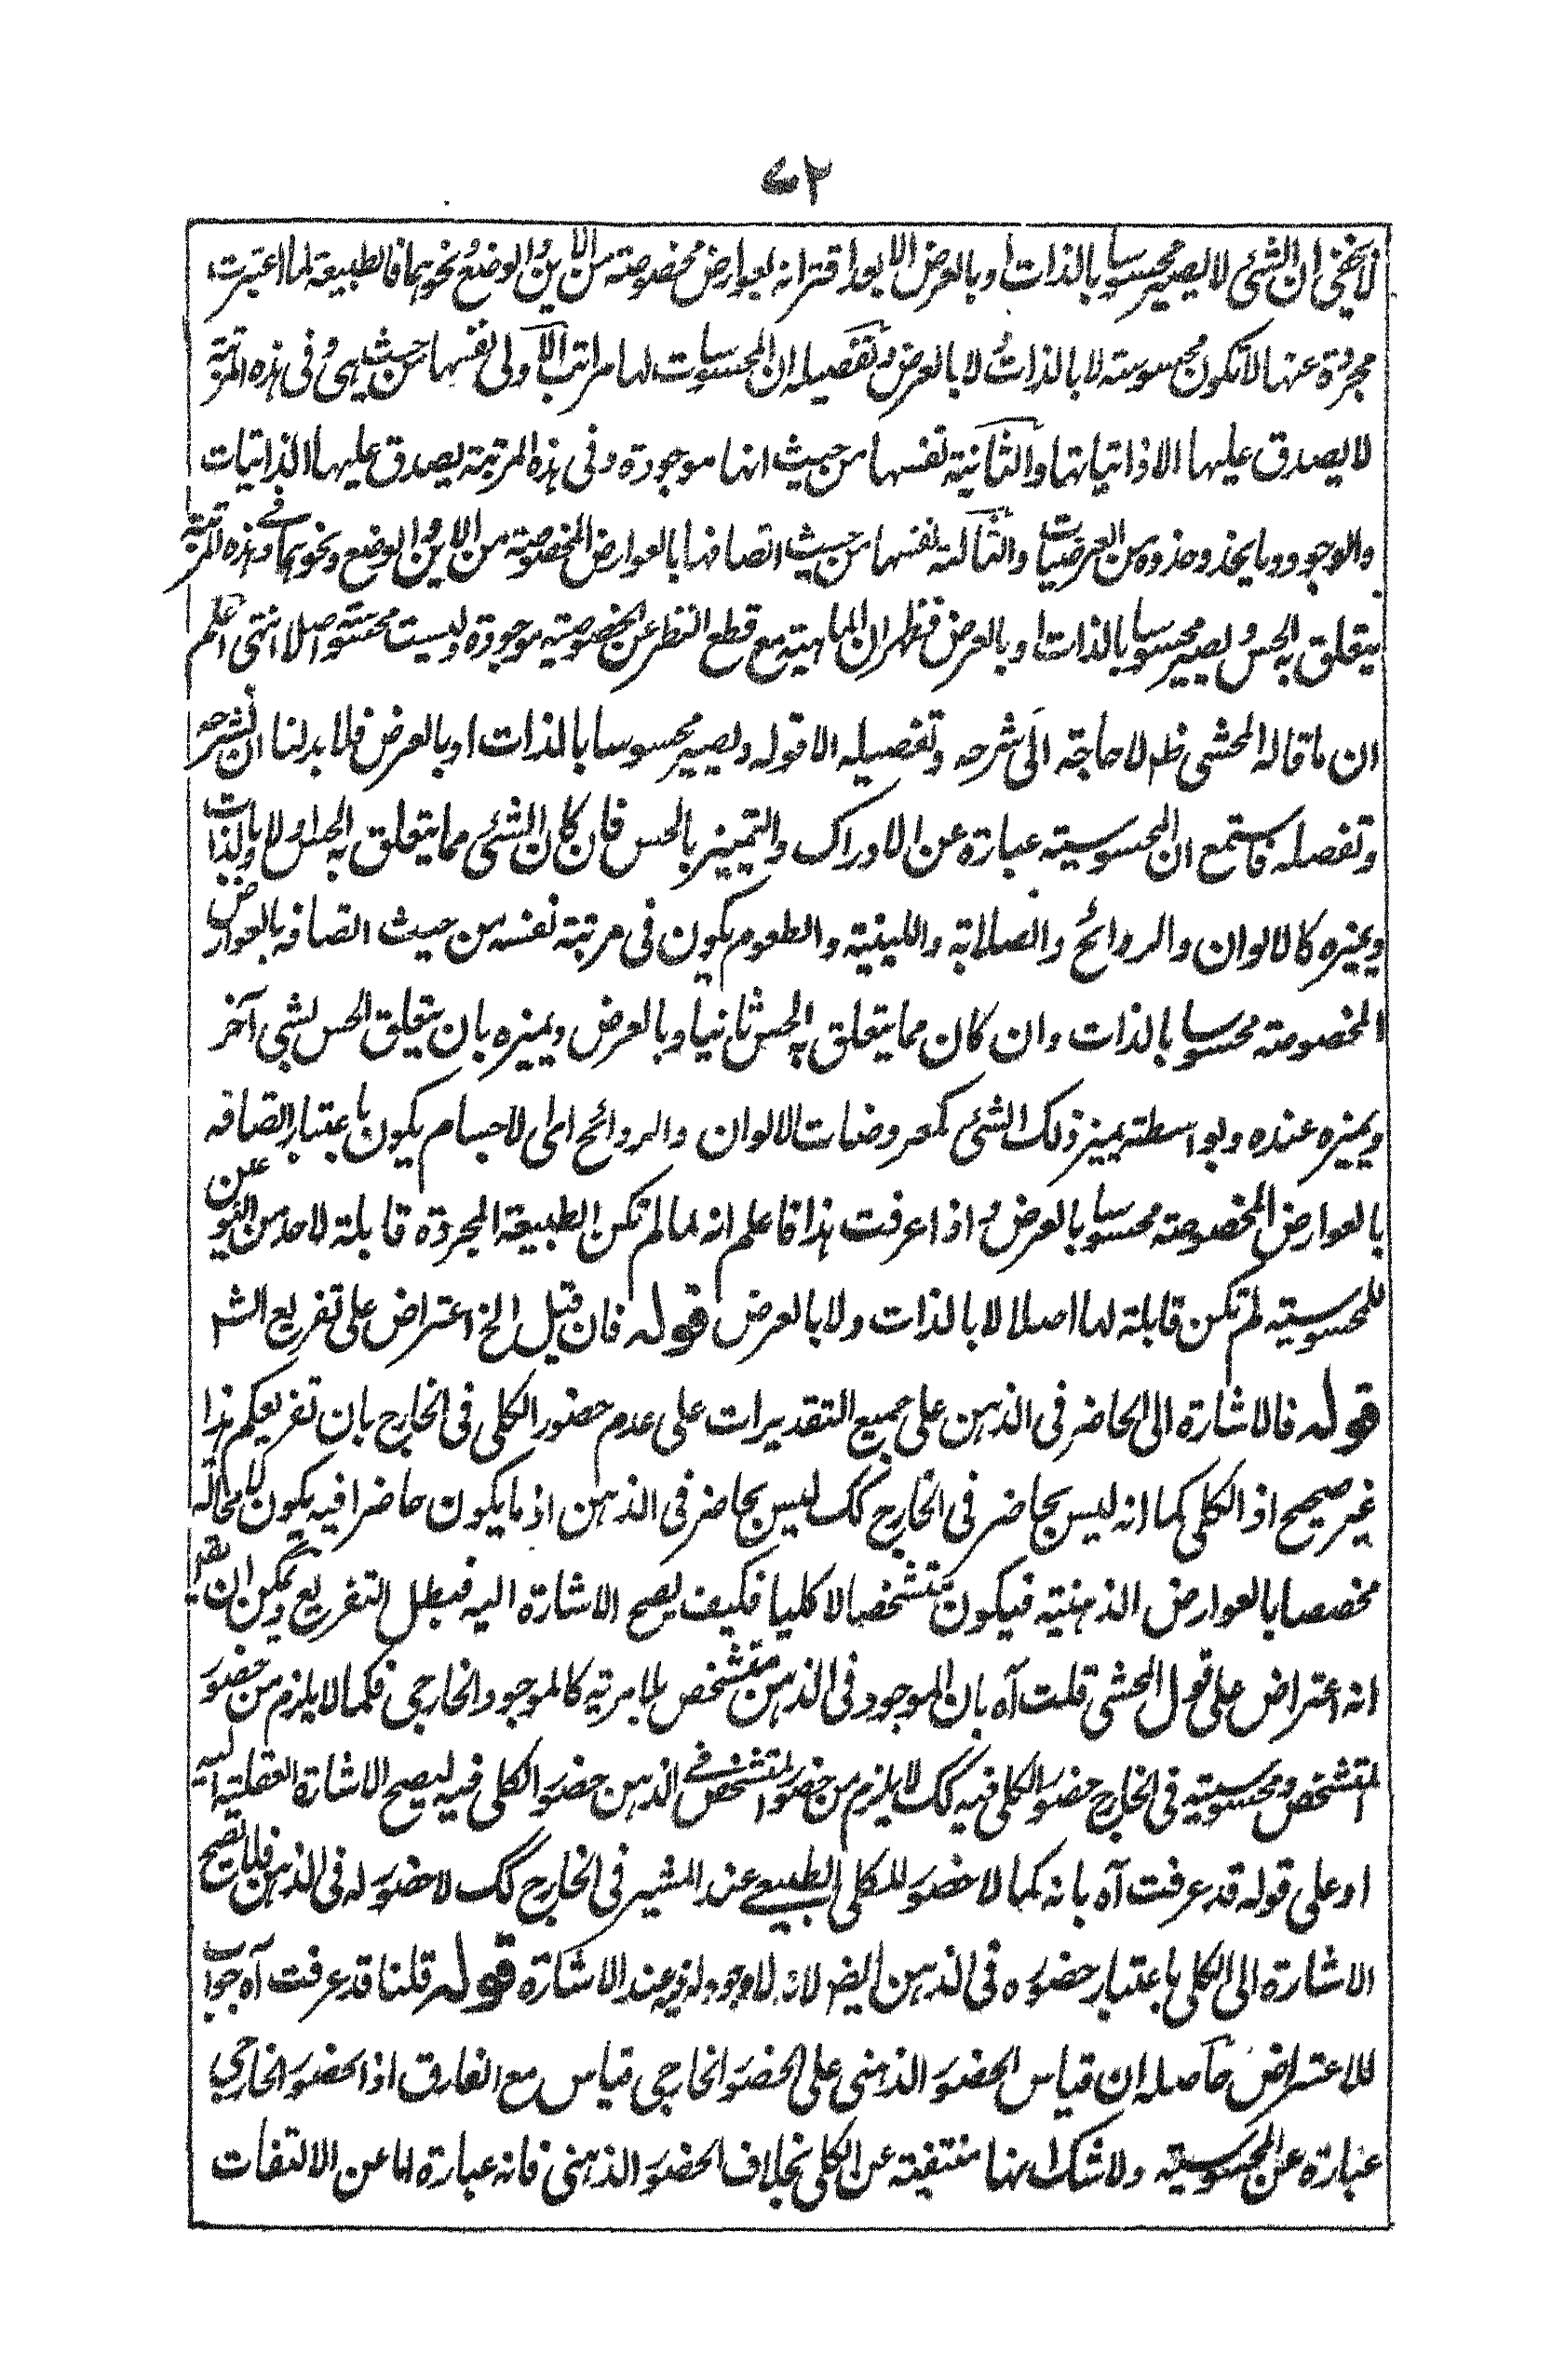 ۷۲
لا يخفى ان الشئ لا يصير محسوسا بالذات او بالعرض الا بعد اقترانه بعوارض مخصوصة من الاين والوضع ونحوهما فالطبيعة لما اعتبرت
مجردة عنها لا تكون محسوسة لا بالذات ولا بالعرض وتفصيله ان المحسوسات لها مراتب الاولى نفسها من حيث هى وفى هذه المرتبة
لا يصدق عليها الا ذاتياتها والثانية نفسها من حيث انها موجودة وفى هذه المرتبة يصدق عليها الذاتيات
والوجود وما يحذو حذوه من العرضيات والثالثة نفسها من حيث اتصافها بالعوارض المخصوصة من الاين والوضع ونحوهما وفى هذه المرتبة
يتعلق به الحس ويصير محسوسا بالذات او بالعرض فظهر ان الماهية مع قطع النظر عن الخصوصية موجودة وليست محسوسة اصلا انتهى اعلم
ان ما قاله المحشى ظم لا حاجة الى شرحه وتفصيله الا قوله ويصير محسوسا بالذات او بالعرض فلا بد لنا ان نشرحه
وتفصله فاستمع ان المحسوسية عبارة عن الادراك والتميز بالحس فان كان الشئ مما يتعلق به الحس اولا وبالذات
ويميزه كالالوان والروائح والصلابة واللينية والطعوم يكون فى مرتبة نفسه من حيث اتصافه بالعوارض
المخصوصة محسوسا بالذات وان كان مما يتعلق به الحس ثانيا وبالعرض ويميزه بان يتعلق الحس لشئ آخر
ويميزه عنده وبواسطته يميز ذلك الشئ كمعروضات الالوان والروائح اى الاجسام يكون باعتبار اتصافه
بالعوارض المخصوصة محسوسا بالعرض واذا عرفت هذا فاعلم انه لما لم تكن الطبيعة المجردة قابلة لاحد من النوعين
للمحسوسية لم تكن قابلة لها اصلا لا بالذات ولا بالعرض قوله فان قيل الخ اعتراض على تفريع الش
قوله فالاشارة الى الحاضر فى الذهن على جميع التقديرات على عدم حضور الكلى فى الخارج بان تفريعكم هذا
غير صحيح اذ الكلى كما انه ليس بحاضر فى الخارج كك ليس بحاضر فى الذهن اذ ما يكون حاضرا فيه يكون لا محالة
مخصصا بالعوارض الذهنية فيكون متشخصا لا كليا فكيف يصح الاشارة اليه فبطل التفريع ويمكن ان يقرا
انه اعتراض على قول المحشى قلت آه بان الموجود فى الذهن متشخص بلا مرية كالموجود الخارجى فكما لا يلزم من حضور
المتشخص ومحسوسيته فى الخارج حضور الكلى فيه كك لا يلزم من حضور المتشخص فى الذهن حضور الكلى فيه ليصح الاشارة العقلية اليه
او على قوله قد عرفت آه بانه كما لا حضور للكلى الطبيعى عند المشير فى الخارج كك لا حضور له فى الذهن فلا تصح
الاشارة الى الكلى باعتبار حضوره فى الذهن ايضر لانه لا وجود له فيه عند الاشارة قوله قلنا قد عرفت آه جواب
للاعتراض حاصله ان قياس الحضور الذهنى على الحضور الخارجى قياس مع الفارق اذ الحضور الخارجى
عبارة عن المحسوسية ولا شك انها منتفية عن الكلى بخلاف الحضور الذهنى فانه عبارة اما عن الالتفات